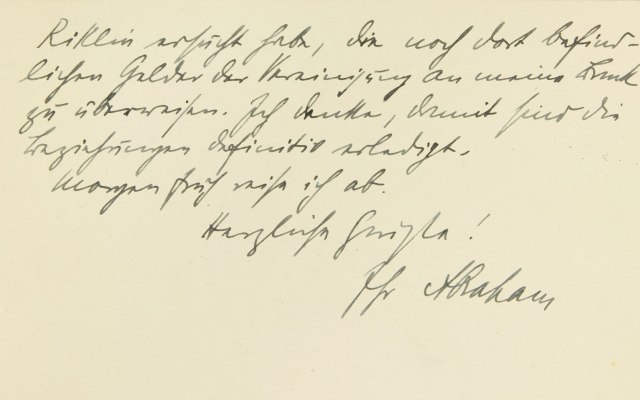 Riklin ersucht habe, die noch dort befind-
lichen Gelder der Vereinigung an meine Bank
zu überweisen. Ich denke, damit sind die
Beziehungen definitiv erledigt.
Morgen früh reise ich ab.
Herzliche Grüße!
Ihr Abraham